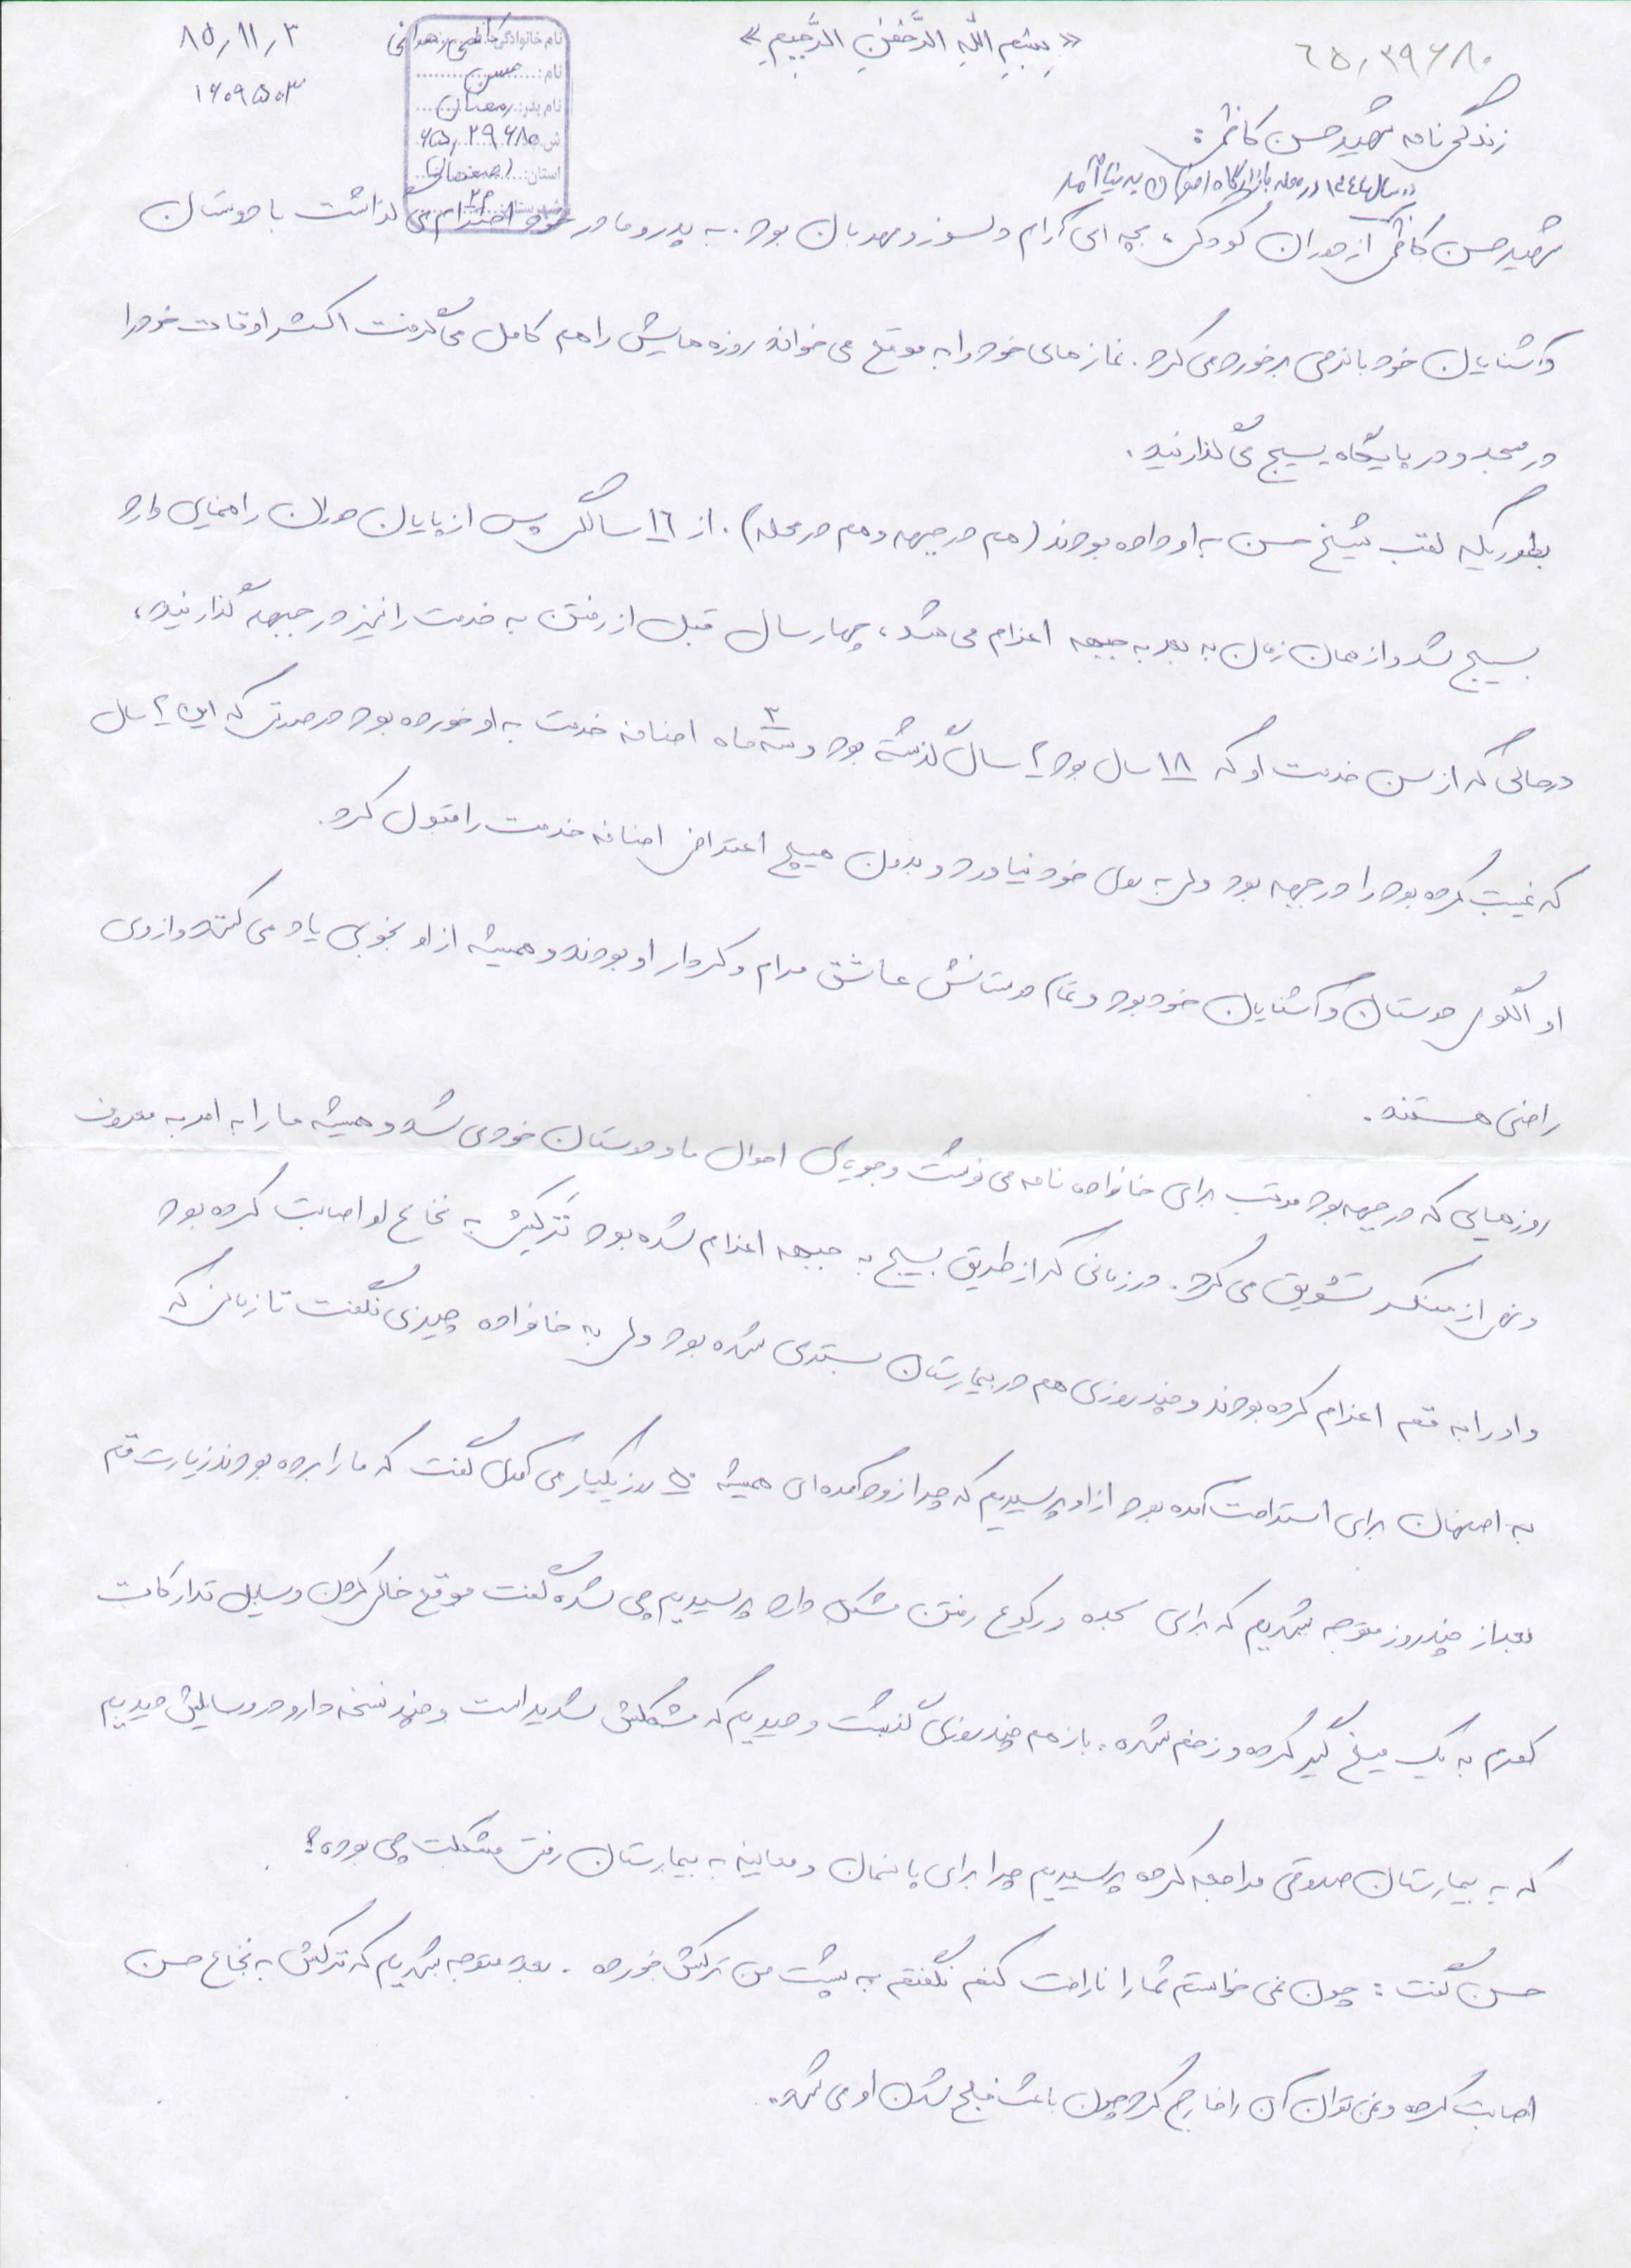 «بِسْمِ اللّهِ الرَّحْمنِ الرَّحِیمِ»
۸۵٫۱۱٫۳
۱۶۰۹۵۰۳
نام خانوادگی:
نام: حسن
نام پدر: رمضان
ش ۶۵٫۲۹۶۸۰
استان: اصفهان
زندگی نامه شهید حسن کاظمی:
در سال ۱۳۴۴ در محله اصفهان به دنیا آمد
شهید حسن کاظمی از دوران کودکی، بچه ای آرام دلسوز و مهربان بود. به پدر و مادر خود احترام می گذاشت با دوستان
و آشنایان خود با نرمی برخورد می کرد. نمازهای خود را به موقع می خواند روزه هایش را هم کامل می گرفت اکثر اوقات خود را
در مسجد و در پایگاه بسیج می گذارنید.
بطوریکه لقب شیخ حسن به او داده بودند (هم در جبهه و هم در محله). از ۱۶ سالگی پس از پایان دوران راهنمایی وارد
بسیج شد و از همان زمان به بعد به جبهه اعزام می شد، چهار سال قبل از رفتن به خدمت را نیز در جبهه گذارنید،
درحالی که از سن خدمت او که ۱۸ سال بود ۲ سال گذشته بود و سه ۳ ماه اضافه خدمت به او خورده بود درصورتی که این ۲ سال
که غیبت کرده بود را در جبهه بود ولی به روی خود نیاورد و بدون هیچ اعتراض اضافه خدمت را قبول کرد.
او الگوی دوستان و آشنایان خود بود و تمام دوستانش عاشق مرام و کردار او بودند و همیشه از او بخوبی یاد می کنند و از وی
راضی هستند.
روزهایی که در جبهه بود مرتب برای خانواده نامه می نوشت و جویای احوال ما و دوستان خود می شد و همیشه ما را به امر به معروف
و نهی از منکر تشویق می کرد. در زمانی که از طریق بسیج به جبهه اعزام شده بود ترکش به نخاع او اصابت کرده بود
و او را به قم اعزام کرده بودند و چند روزی هم در بیمارستان بستری شده بود ولی به خانواده چیزی نگفت تا زمانی که
به اصفهان برای استراحت آمده بود از او پرسیدیم که چرا زود آمده ای همیشه روز یکبار می آمدی گفت که ما را برده بودند زیارت قم
بعد از چند روز متوجه شدیم که برای سجده و رکوع رفتن مشکل دارد پرسیدیم چی شده گفت موقع خالی کردن وسایل تدارکات
کمرم به یک میخ گیر کرده و زخم شده. باز هم چند روزی گذشت و دیدیم که مشکلش شدید است و چند نسخه دارو در وسایلش دیدیم
که به بیمارستان صدوقی مراجعه کرده پرسیدیم چرا برای پانسمان و معاینه به بیمارستان رفتی مشکلت چی بوده؟
حسن گفت: چون نمی خواستم شما را ناراحت کنم نگفتم به پشت من ترکش خورده. بعد متوجه شدیم که ترکش به نخاع حسن
اصابت کرده و نمی توان آن را خارج کرد چون باعث فلج شدن او می شود.